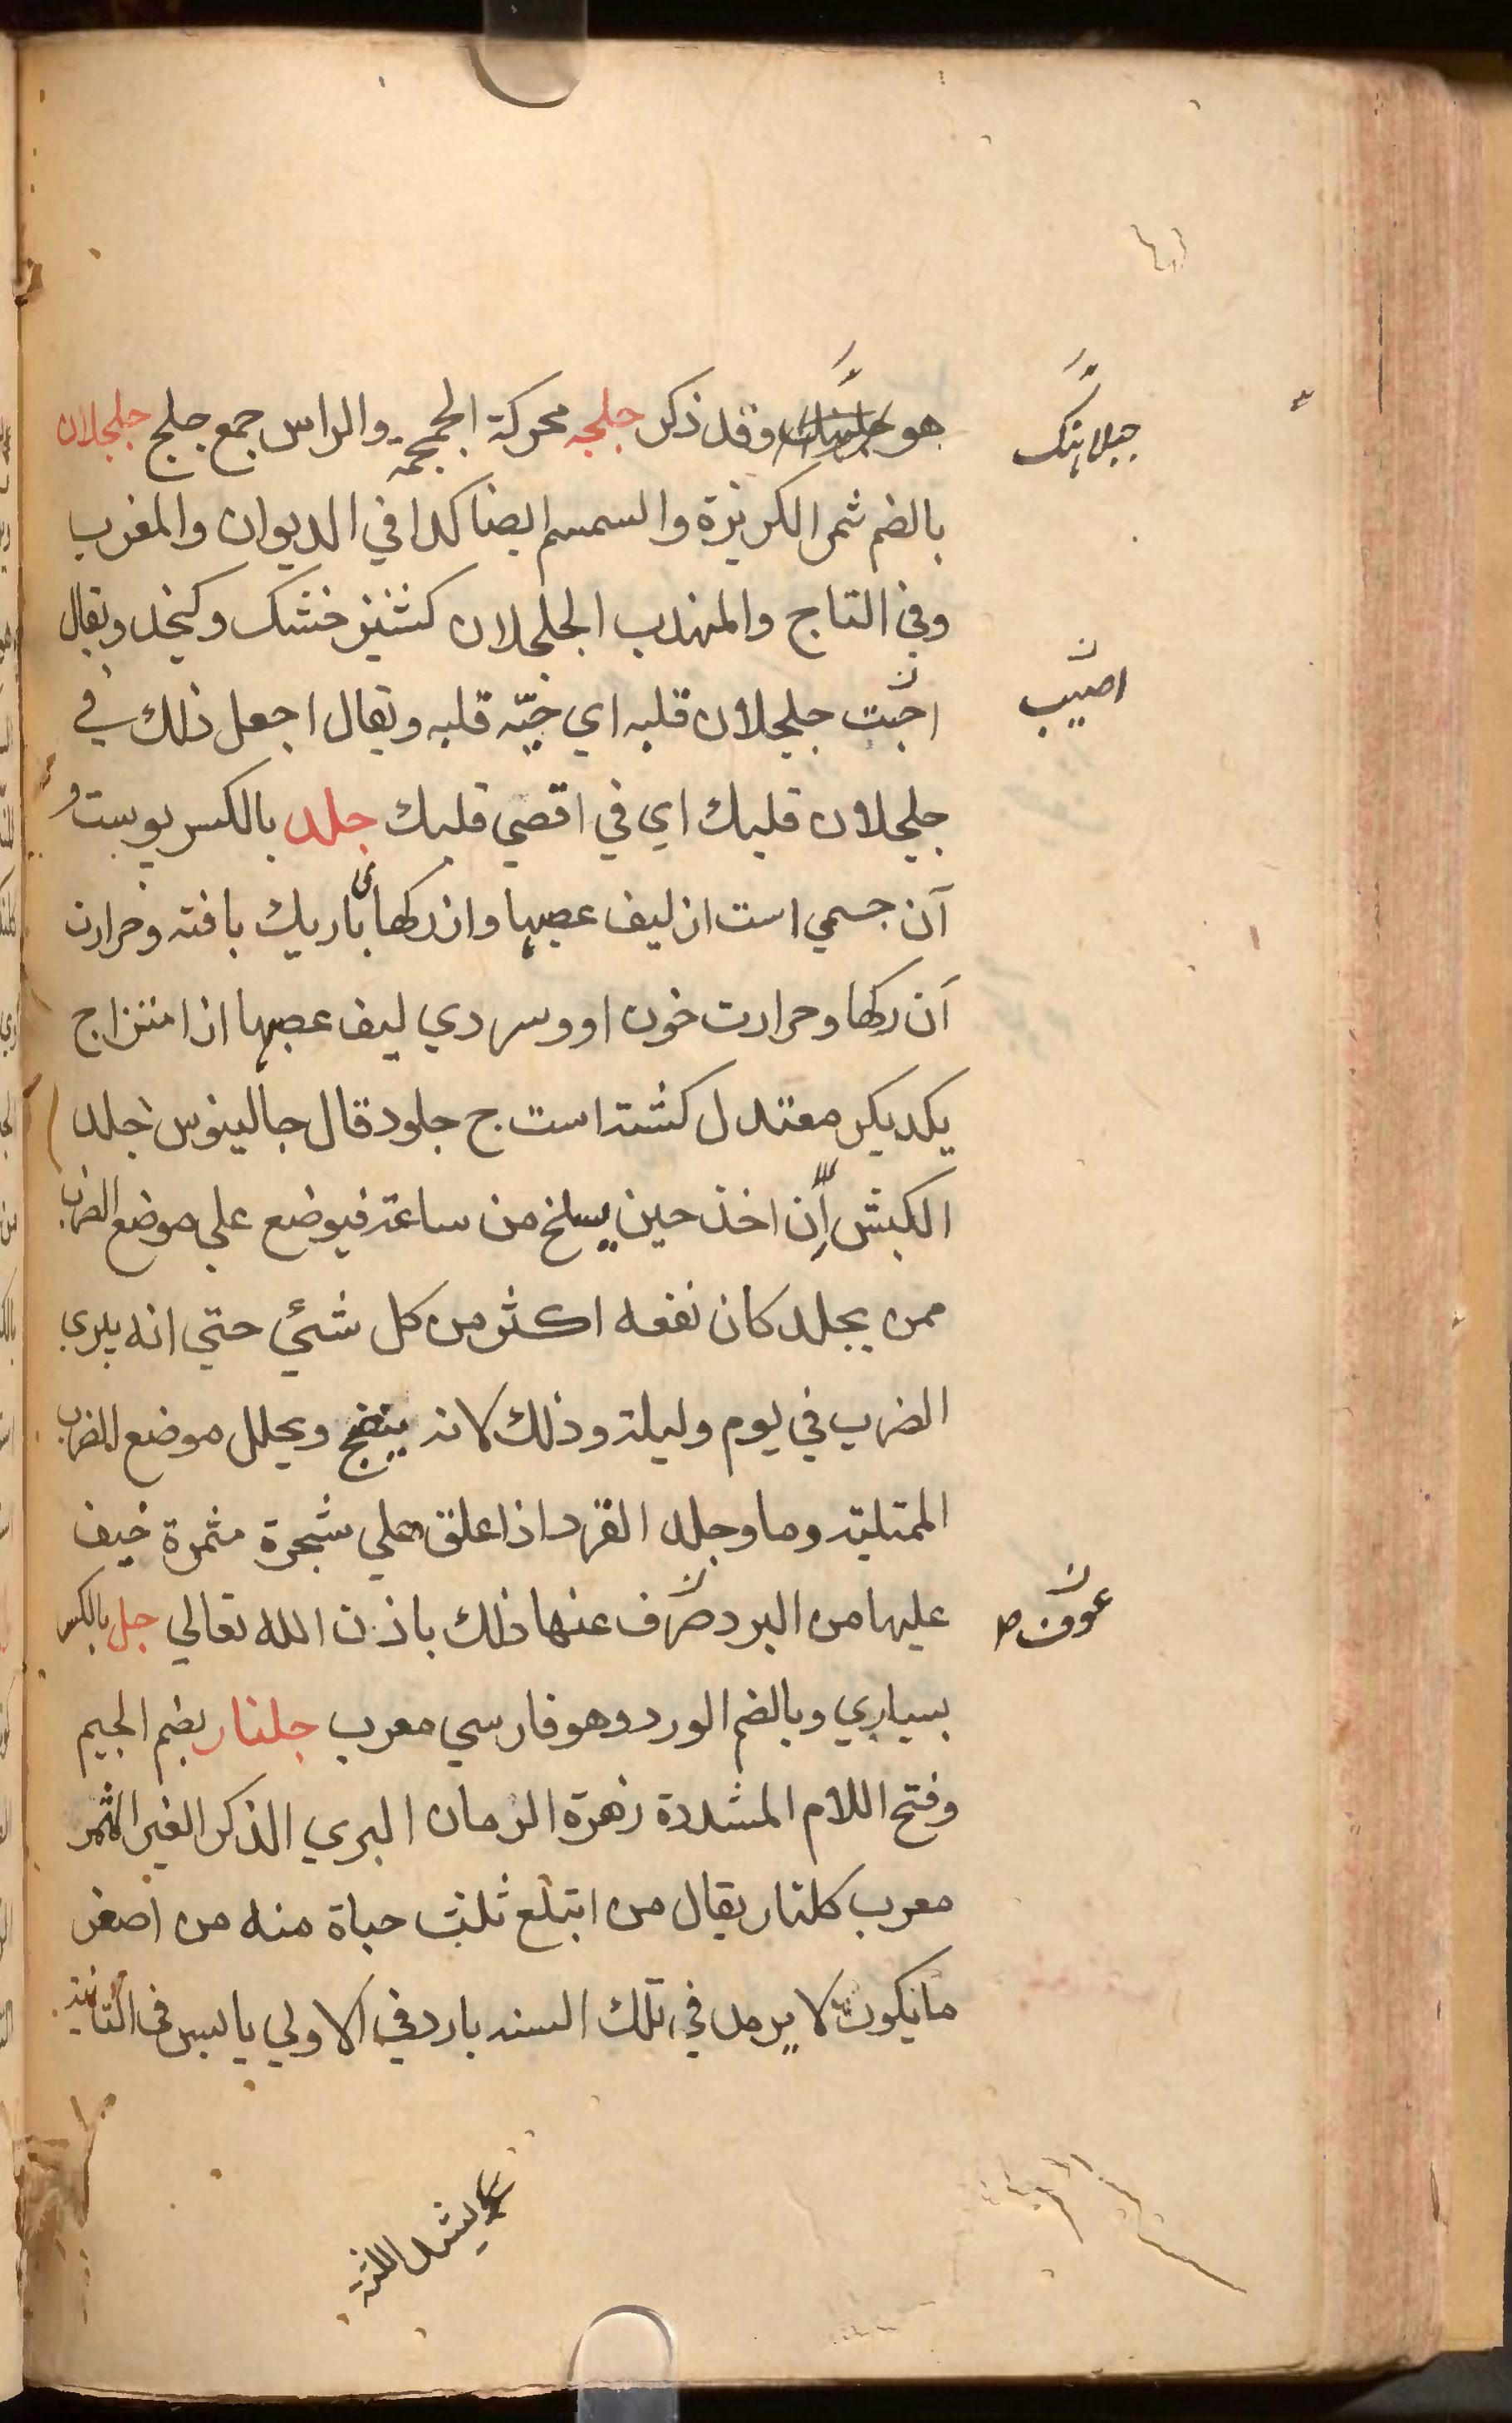 هو وقد ذكر جلجه محركة الجمجمة والراس جمع جلج جلجلان
بالضم ثمر الكزبرة والسمسم ايضا كذا في الديوان والمغرب
وفي التاج والمهذب الجلجلان كشنيز خشك وكنجد ويقال
اجبت جلجلان قلبه اي حبّه قلبه ويقال اجعل ذلك في
جلجلان قلبك اي في اقصي قلبك جلد بالكسر پوست و
آن جسمي است از ليف عصبها واز ركهاى باريك بافته وحرارت
آن ركها وحرارت خون او وسردي ليف عصبها از امتزاج
يكديكر معتدل كشته است ج جلود قال جالينوس جلد
الكبش اِن اخذ حين يسلخ من ساعته فيوضع علي موضع الضرب
ممن يجلد كان نفعه اكثر من كل شئي حتي انه يبرى
الضرب في يوم وليلة وذلك لانه ينضج ويحلل موضع الضرب
الممتليه وما وجلد القرد اذا علق علي شجرة مثمرة خيف
عليها من البرد صرف عنها ذلك باذن الله تعالي جل بالكسر
بسياري وبالضم الورد وهو فارسي معرب جلنار بضم الجيم
وفتح اللام المشددة زهرة الرمان البري الذكر الغير المثمر
معرب كلنار يقال من ابتلع ثلث حباة منه من اصغر
ما يكون لا يرمد في تلك السنه بارد في الاولي يابس في الثانية
جبلاهنك
اصيب
عوف ص
يشد اللثة